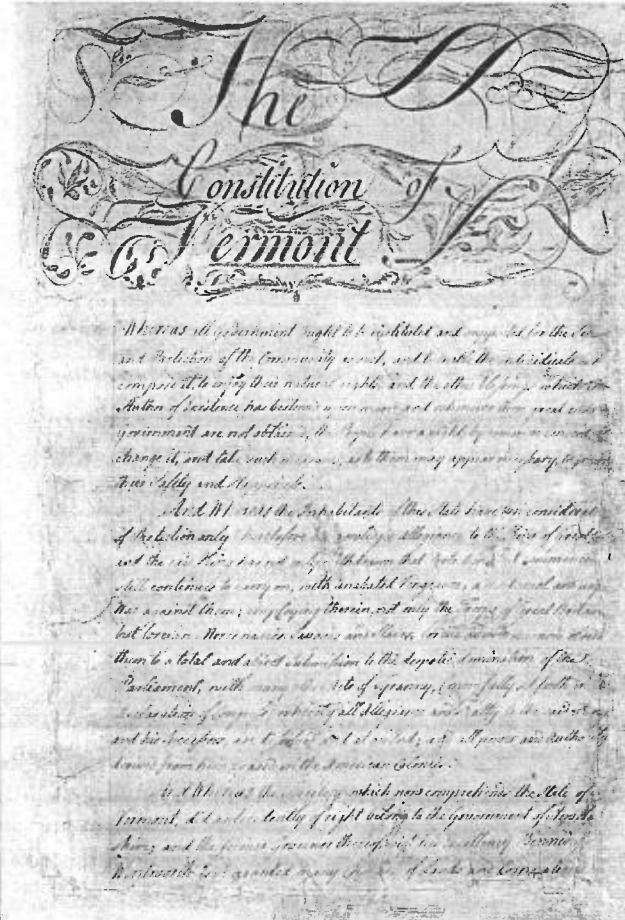 The
Constitution of
Vermont
Whereas all government ought to be instituted and supported for the
and Protection of the Community as such, and to enable the individuals
compose it, to enjoy their natural rights, and the other blessings which the
Author of existence has bestowed upon man; and whenever these great ends of
government are not obtained, the People have a right, by common consent to
change it, and take such measures, as to them may appear necessary to promote
their Safety and Happiness.
And Whereas the Inhabitants of this State have
of Protection only, heretofore acknowledged allegiance to the King of
and the said King has not only withdrawn that Protection, but commenced
still continues to carry on, with unabated vengeance, a most cruel and unjust
War against them; employing therein, not only the Troops of Great Britain
but foreign Mercenaries, Savages and Slaves, for the avowed purpose of
them to a total and abject submission to the despotic domination of the
Parliament, with many other Acts of tyranny, (more fully set forth in the
declaration of Congress) whereby all Allegiance and fealty to the said King
and his Successors, are dissolved and at an end; and all power and authority
derived from him ceased in the American Colonies.
And Whereas the territory which now comprehends the State of
Vermont, did antecedently of right belong to the Government of
and the former Governor thereof, viz his Excellency Benning
Wentworth Esqr granted many charters of lands and corporations